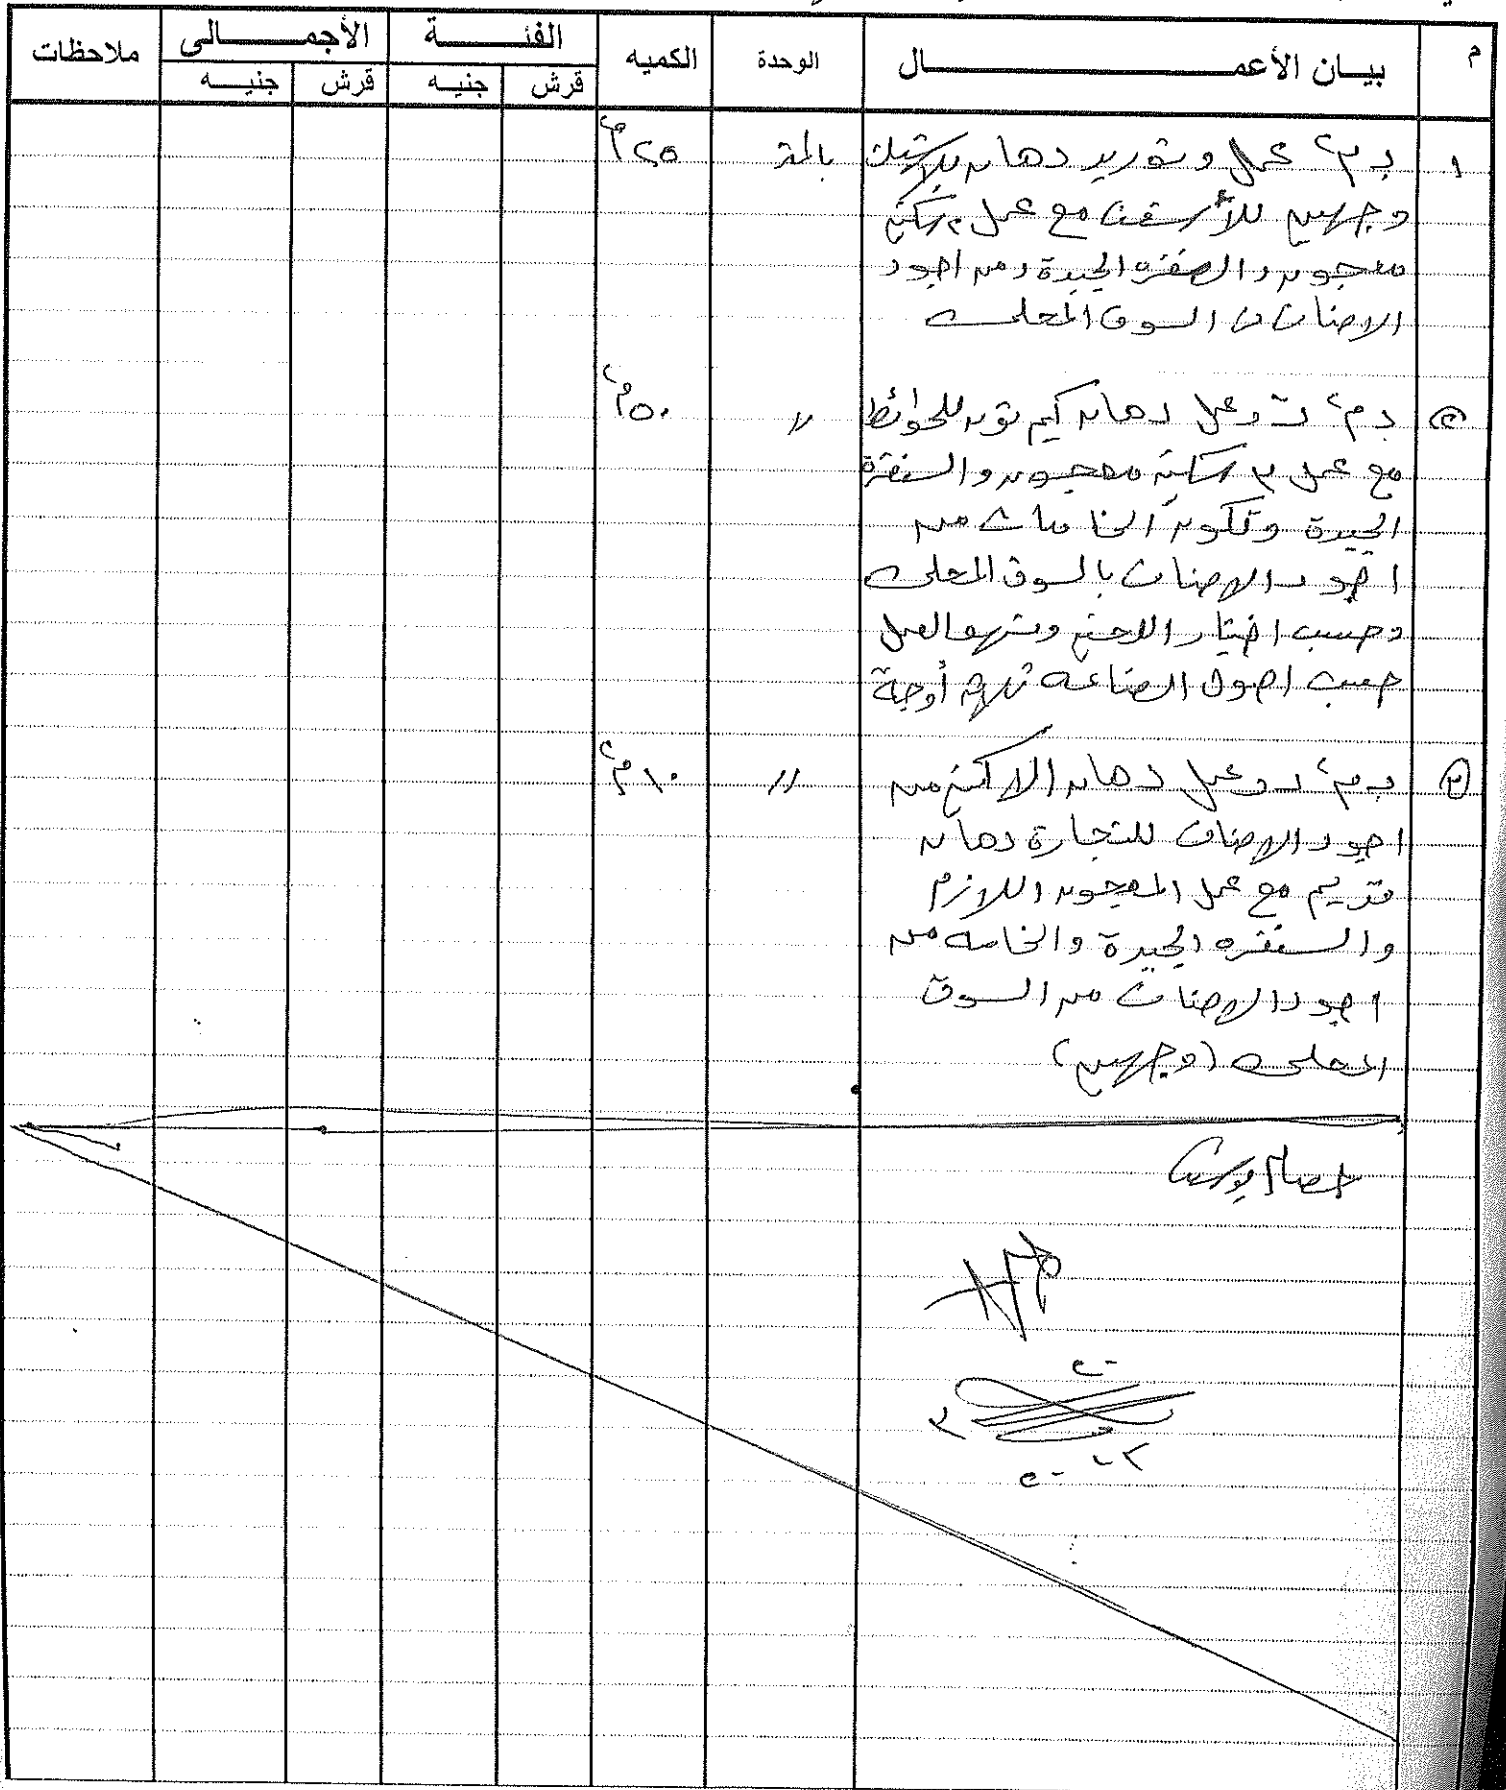 م بيان الأعمال الوحدة الكميه الفئة الأجمالى ملاحظات
قرش جنيه قرش جنيه
١ بـ م٢ عمل وتوريد دهان بلاستيك بالمتر ٢٥ م٢
وجهين للأسقف مع عمل ٢ سكينة
معجون والصنفره الجيدة ومن اجود
الاصناف من السوق المحلى
٢ بـ م٢ ت وعمل دهان كيم تون للحوائط 〃 ٥٠ م٢
مع عمل ٣ سكينة معجون والسنفرة
الجيدة وتكون الخامات من
اجود الاصناف بالسوق المحلى
وحسب اختيار اللجنة ونهو العمل
حسب اصول الصناعه ثلاثة أوجة
٣ بـ م٢ ت وعمل دهان الاكية من 〃 ١٠ م٢
اجود الاصناف للنجارة دهان
قديم مع عمل المعجون اللازم
والسنفره الجيدة والخامه من
اجود الاصناف من السوق
المحلى (وجهين)